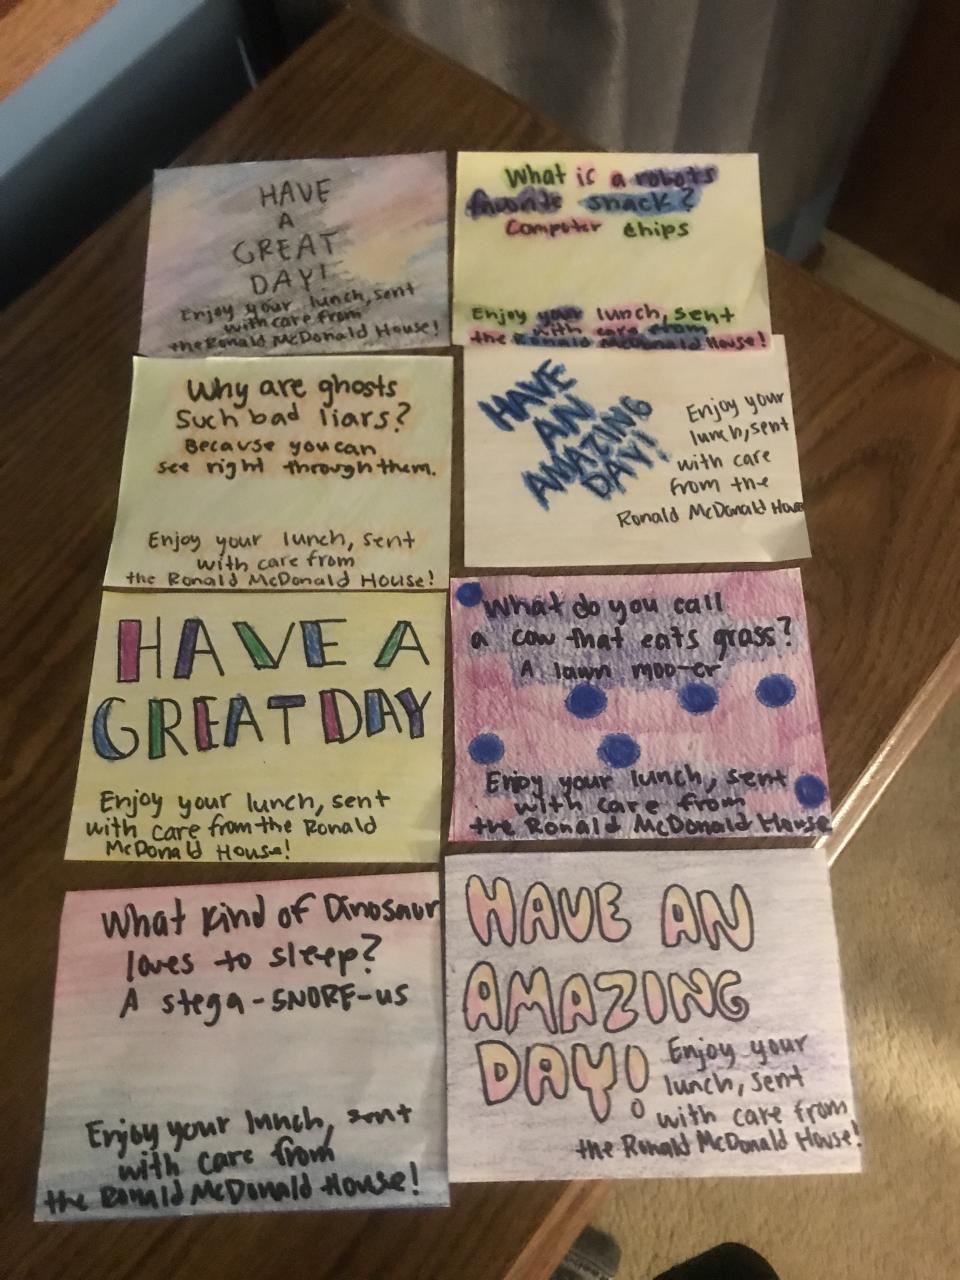 HAVE
A
GREAT
DAY!
Enjoy your lunch, sent
with care from
the Ronald McDonald House!
What is a robots
favorite snack?
Computer chips
Enjoy your lunch, sent
with care from
the Ronald McDonald House!
Why are ghosts
such bad liars?
Because you can
see right through them.
Enjoy your lunch, sent
with care from
the Ronald McDonald House!
HAVE
AN
AMAZING
DAY!
Enjoy your
lunch, sent
with care
from the
Ronald McDonald House
HAVE A
GREAT DAY
Enjoy your lunch, sent
with care from the Ronald
McDonald House!
What do you call
a cow that eats grass?
A lawn moo-er
Enjoy your lunch, sent
with care from
the Ronald McDonald House
What kind of Dinosaur
loves to sleep?
A stega-SNORE-us
Enjoy your lunch, sent
with care from
the Ronald McDonald House!
HAVE AN
AMAZING
DAY!
Enjoy your
lunch, sent
with care from
the Ronald McDonald House!